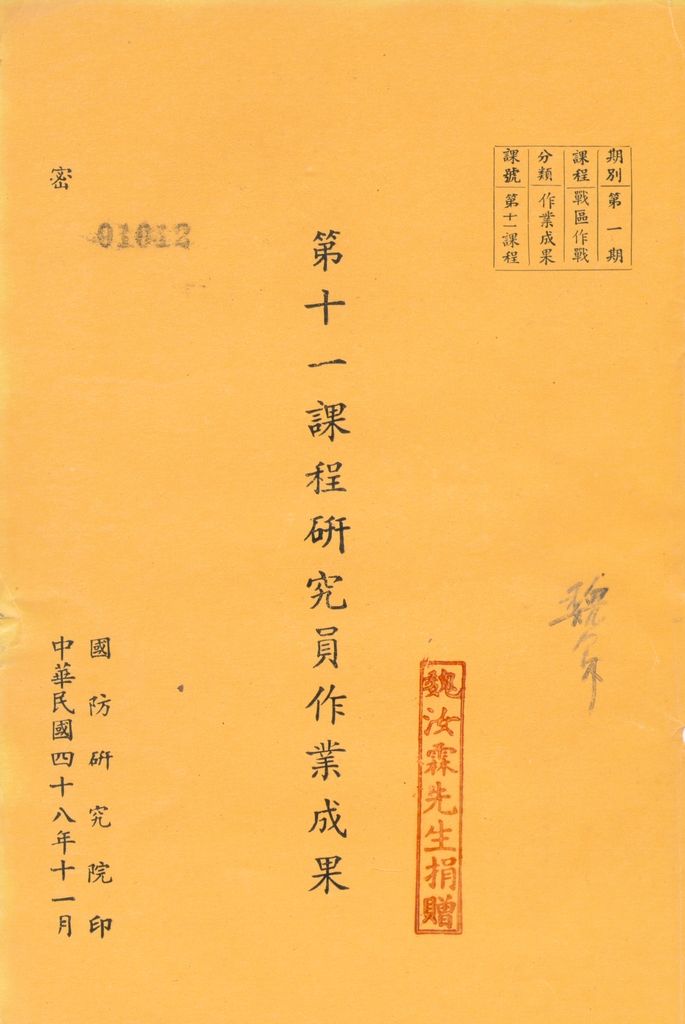 期別 第一期
課程 戰區作戰
分類 作業成果
課號 第十一課程
密
01012
第十一課程研究員作業成果
魏汝霖先生捐贈
國防研究院印
中華民國四十八年十一月